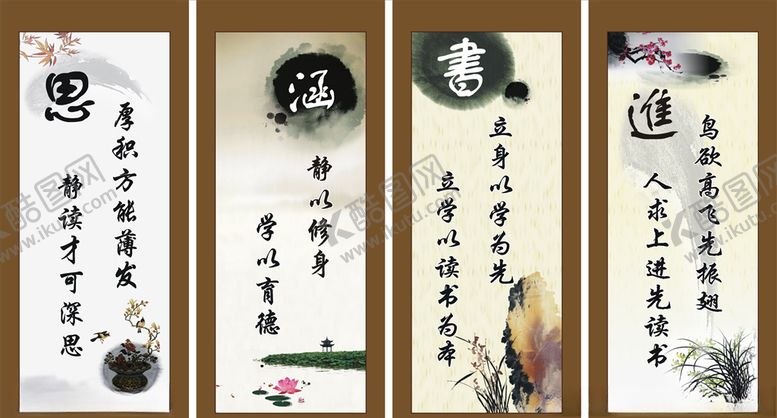 思
厚积方能薄发
静读才可深思
涵
静以修身
学以育德
書
立身以学为先
立学以读书为本
進
鸟欲高飞先振翅
人求上进先读书
酷图网
www.ikutu.com